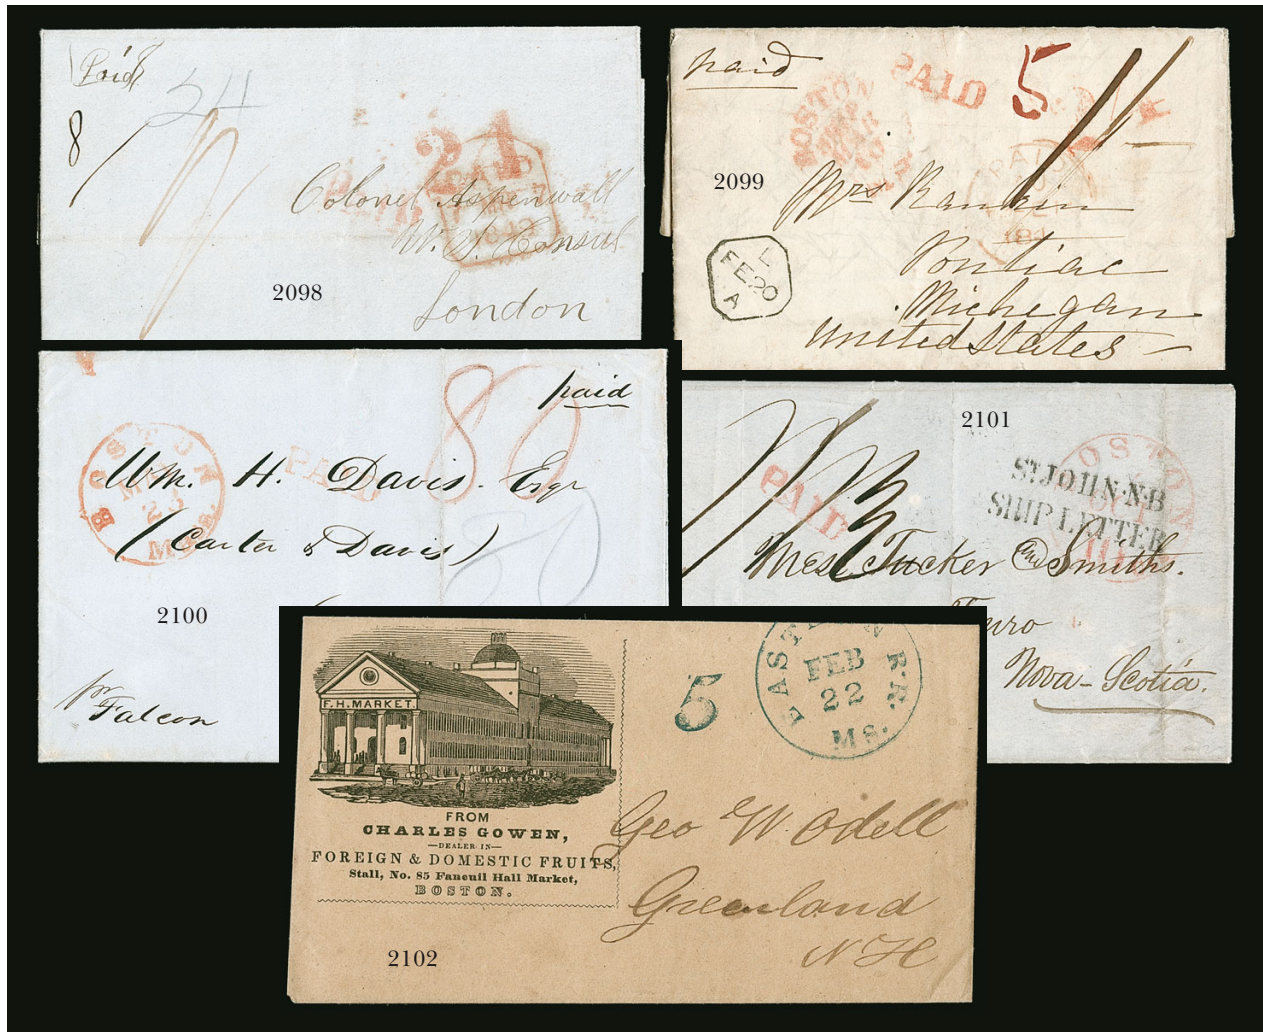 Paid
8
24
8
21
PAID
Colonel Aspinwall
U.S. Consul
London
2098
paid
BOSTON
PAID
5
PAID
2099
Mrs Rankin
Pontiac
Michegan
United States
L
FE 20
A
paid
80
BOSTON
MAY
23
MS.
PAID
Wm. H. Davis. Esqr
(Carter & Davis)
80
2100
pr
Falcon
2101
PAID
BOSTON
St. JOHN·N·B
SHIP LETTER
Mess. Tucker and Smiths.
Truro
Nova-Scotia.
5
EASTERN R.R.
FEB
22
MS.
F.H. MARKET.
FROM
CHARLES GOWEN,
—DEALER IN—
FOREIGN & DOMESTIC FRUITS,
Stall, No. 85 Faneuil Hall Market,
BOSTON.
Geo W. Odell
Greenland
N H
2102